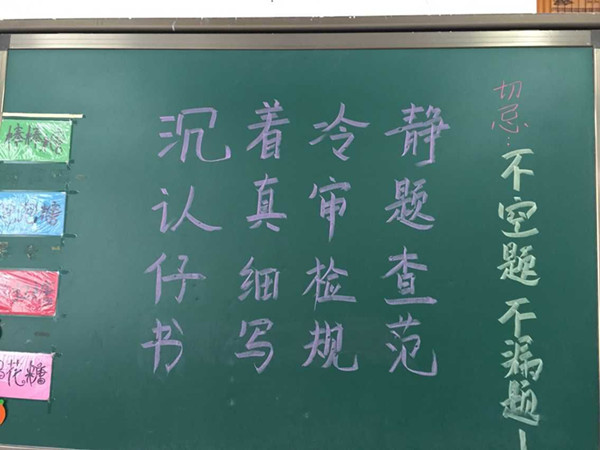 沉着冷静
认真审题
仔细检查
书写规范
切忌:不空题 不漏题!
棒棒糖
花糖